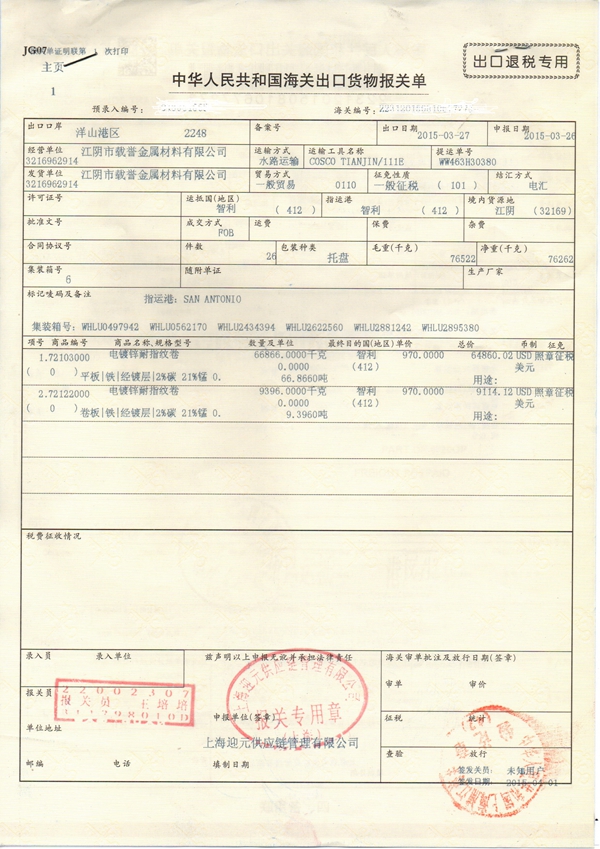 JG07 单证明联第 1 次打印
出口退税专用
主页
1
中华人民共和国海关出口货物报关单
预录入编号： 海关编号：
出口口岸 洋山港区 2248 备案号 出口日期 2015-03-27 申报日期 2015-03-26
经营单位 江阴市载誉金属材料有限公司 3216962914 运输方式 水路运输 运输工具名称 COSCO TIANJIN/111E 提运单号 WW463H30380
发货单位 江阴市载誉金属材料有限公司 3216962914 贸易方式 一般贸易 0110 征免性质 一般征税 (101) 结汇方式 电汇
许可证号 运抵国(地区) 智利 (412) 指运港 智利 (412) 境内货源地 江阴 (32169)
批准文号 成交方式 FOB 运费 保费 杂费
合同协议号 件数 26 包装种类 托盘 毛重(千克) 76522 净重(千克) 76262
集装箱号 6 随附单证 生产厂家
标记唛码及备注
指运港: SAN ANTONIO
集装箱号: WHLU0497942 WHLU0562170 WHLU2434394 WHLU2622560 WHLU2881242 WHLU2895380
项号 商品编号 商品名称、规格型号 数量及单位 最终目的国(地区) 单价 总价 币制 征免
1.72103000 电镀锌耐指纹卷 66866.0000千克 智利 970.0000 64860.02 USD 照章征税
( 0 ) 0.0000 (412) 美元
平板|铁|经镀层|2%碳 21%锰 0. 66.8660吨 用途:
2.72122000 电镀锌耐指纹卷 9396.0000千克 智利 970.0000 9114.12 USD 照章征税
( 0 ) 0.0000 (412) 美元
卷板|铁|经镀层|2%碳 21%锰 0. 9.3960吨 用途:
税费征收情况
录入员 录入单位 兹声明以上申报无讹并承担法律责任 海关审单批注及放行日期(签章)
审单 审价
报关员
22002307
报关员 王培培
上海迎元供应链管理有限公司
报关专用章
申报单位(签章)
征税 统计
单位地址
上海迎元供应链管理有限公司
查验 放行
邮编 电话 填制日期
签发关员: 未知用户
签发日期: 2015-04-01